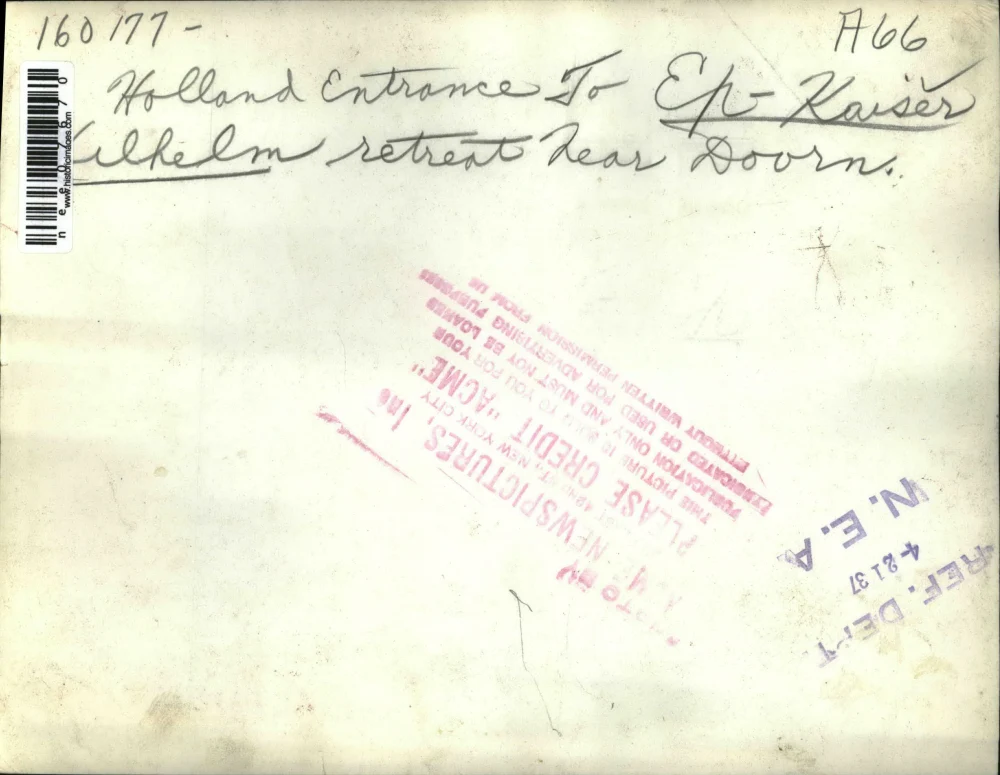 160177- A66
Holland Entrance To Ex-Kaiser
Wilhelm retreat near Doorn.
www.historicimages.com
NEWSPICTURES, Inc
NEW YORK CITY
PLEASE CREDIT "ACME"
THIS PICTURE IS SOLD TO YOU FOR YOUR
PUBLICATION ONLY AND MUST NOT BE LOANED
SYNDICATED OR USED FOR ADVERTISING PURPOSES
WITHOUT WRITTEN PERMISSION FROM US
REF. DEPT
4-21 37
N. E. A